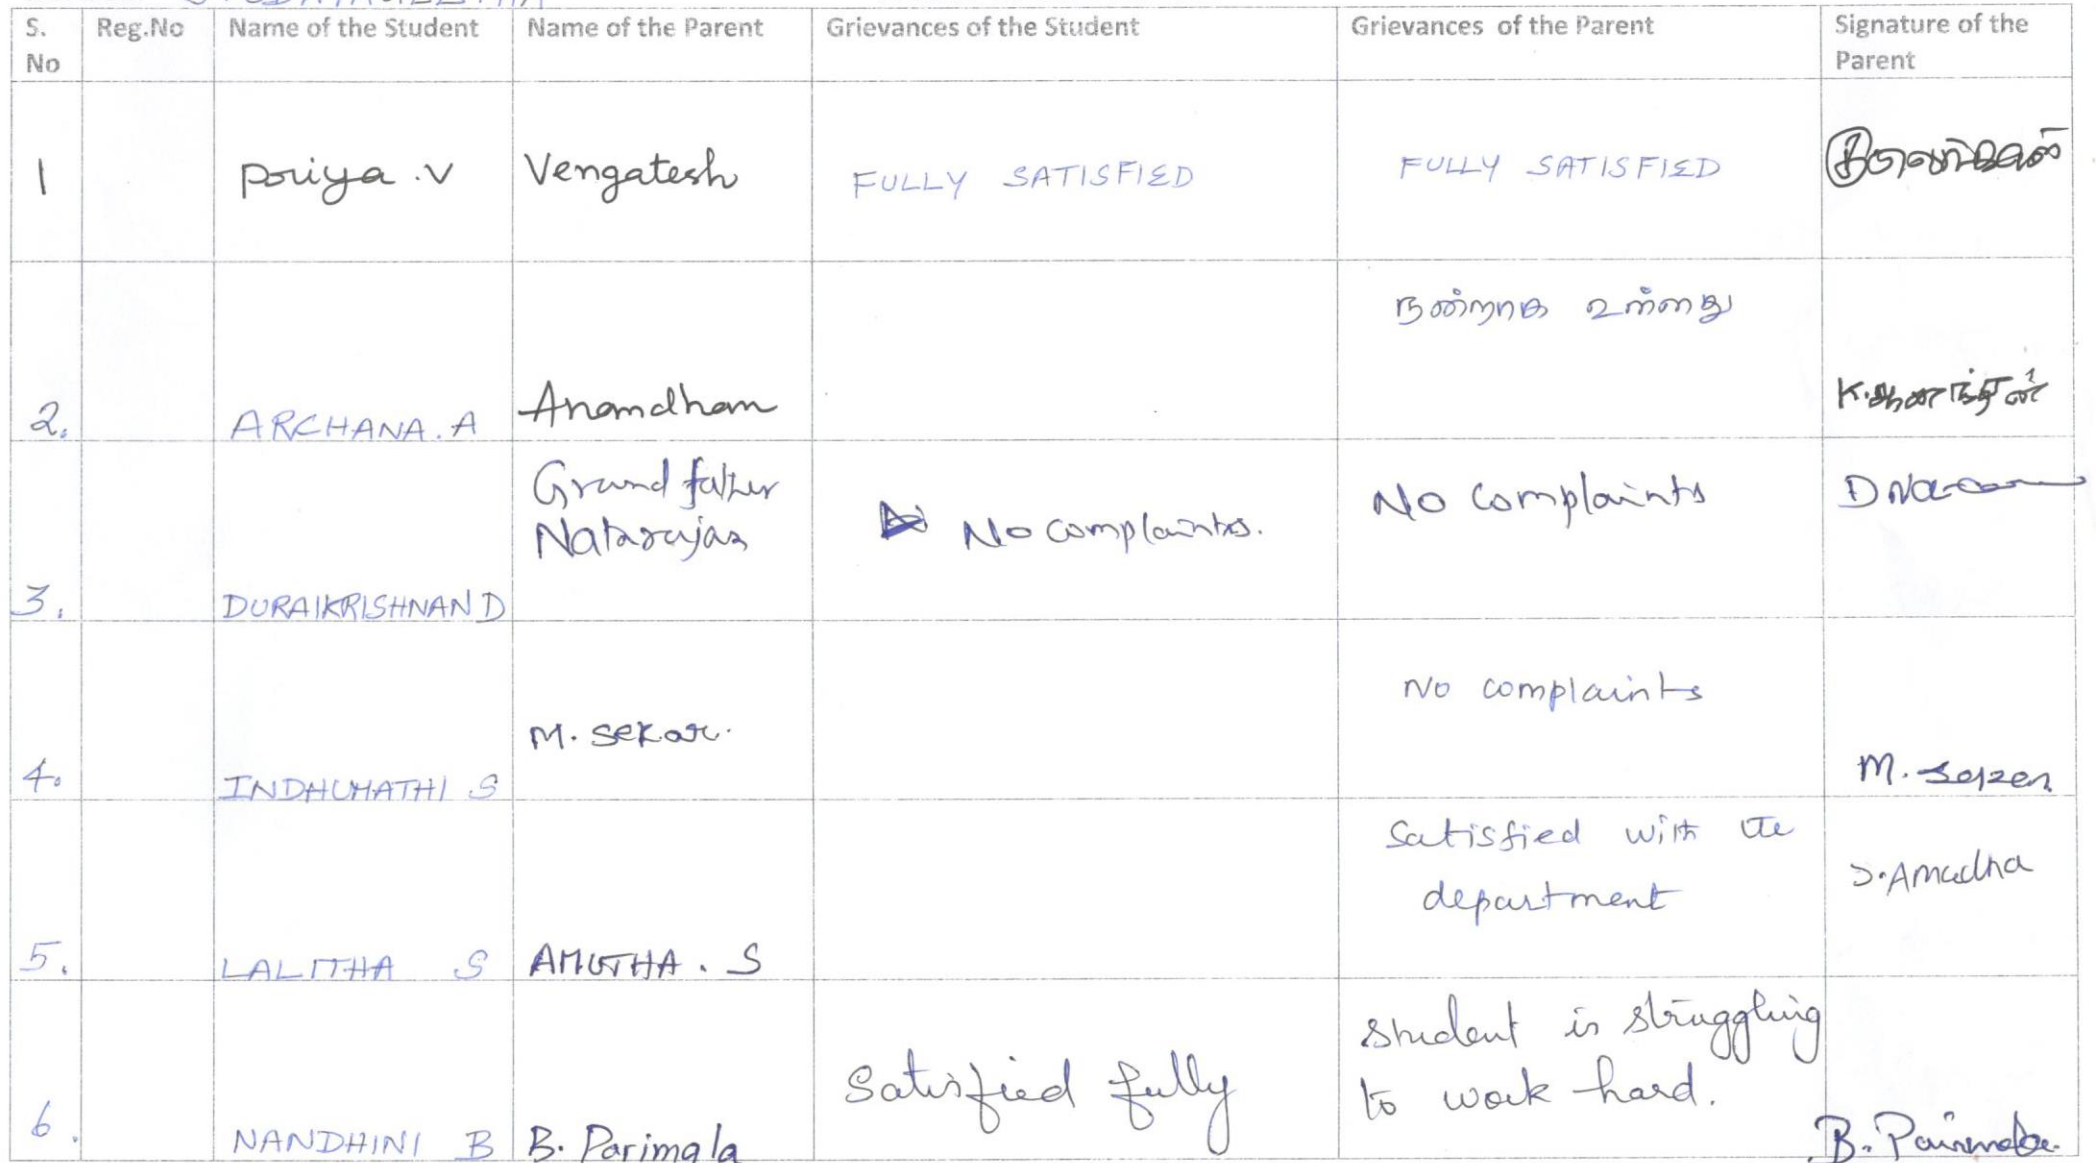 S. No Reg.No Name of the Student Name of the Parent Grievances of the Student Grievances of the Parent Signature of the Parent
1 Priya .V Vengatesh FULLY SATISFIED FULLY SATISFIED
2. ARCHANA. A Anandhan நன்றாக உள்ளது K.ஆனந்தன்
3. DURAIKRISHNAN D Grand father
Natarajan No complaints. No complaints
4. INDHUMATHI S M. Sekar. No complaints
5. LALITHA S AMUTHA. S Satisfied with the
department S.Amudha
6. NANDHINI B B. Parimala Satisfied fully Student is struggling
to work hard. B. Parimala